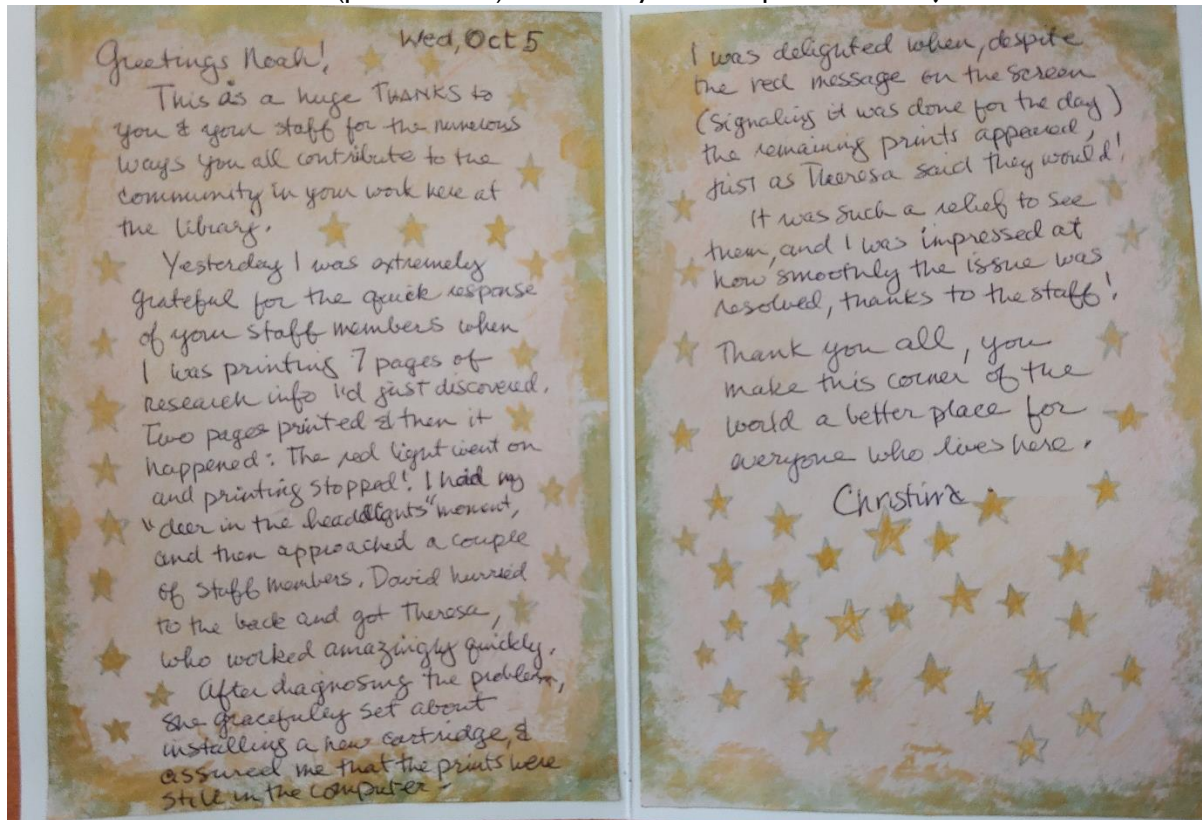 Wed, Oct 5
Greetings Noah!
This is a huge THANKS to
you & your staff for the numerous
ways you all contribute to the
community in your work here at
the library.
Yesterday I was extremely
grateful for the quick response
of your staff members when
I was printing 7 pages of
research info I'd just discovered.
Two pages printed & then it
happened: The red light went on
and printing stopped! I had my
"deer in the headlights" moment,
and then approached a couple
of staff members. David hurried
to the back and got Theresa,
who worked amazingly quickly.
After diagnosing the problem,
she gracefully set about
installing a new cartridge, &
assured me that the prints were
still in the computer.
I was delighted when, despite
the red message on the screen
(signaling it was done for the day)
the remaining prints appeared,
just as Theresa said they would!
It was such a relief to see
them, and I was impressed at
how smoothly the issue was
resolved, thanks to the staff!
Thank you all, you
make this corner of the
world a better place for
everyone who lives here.
Christina